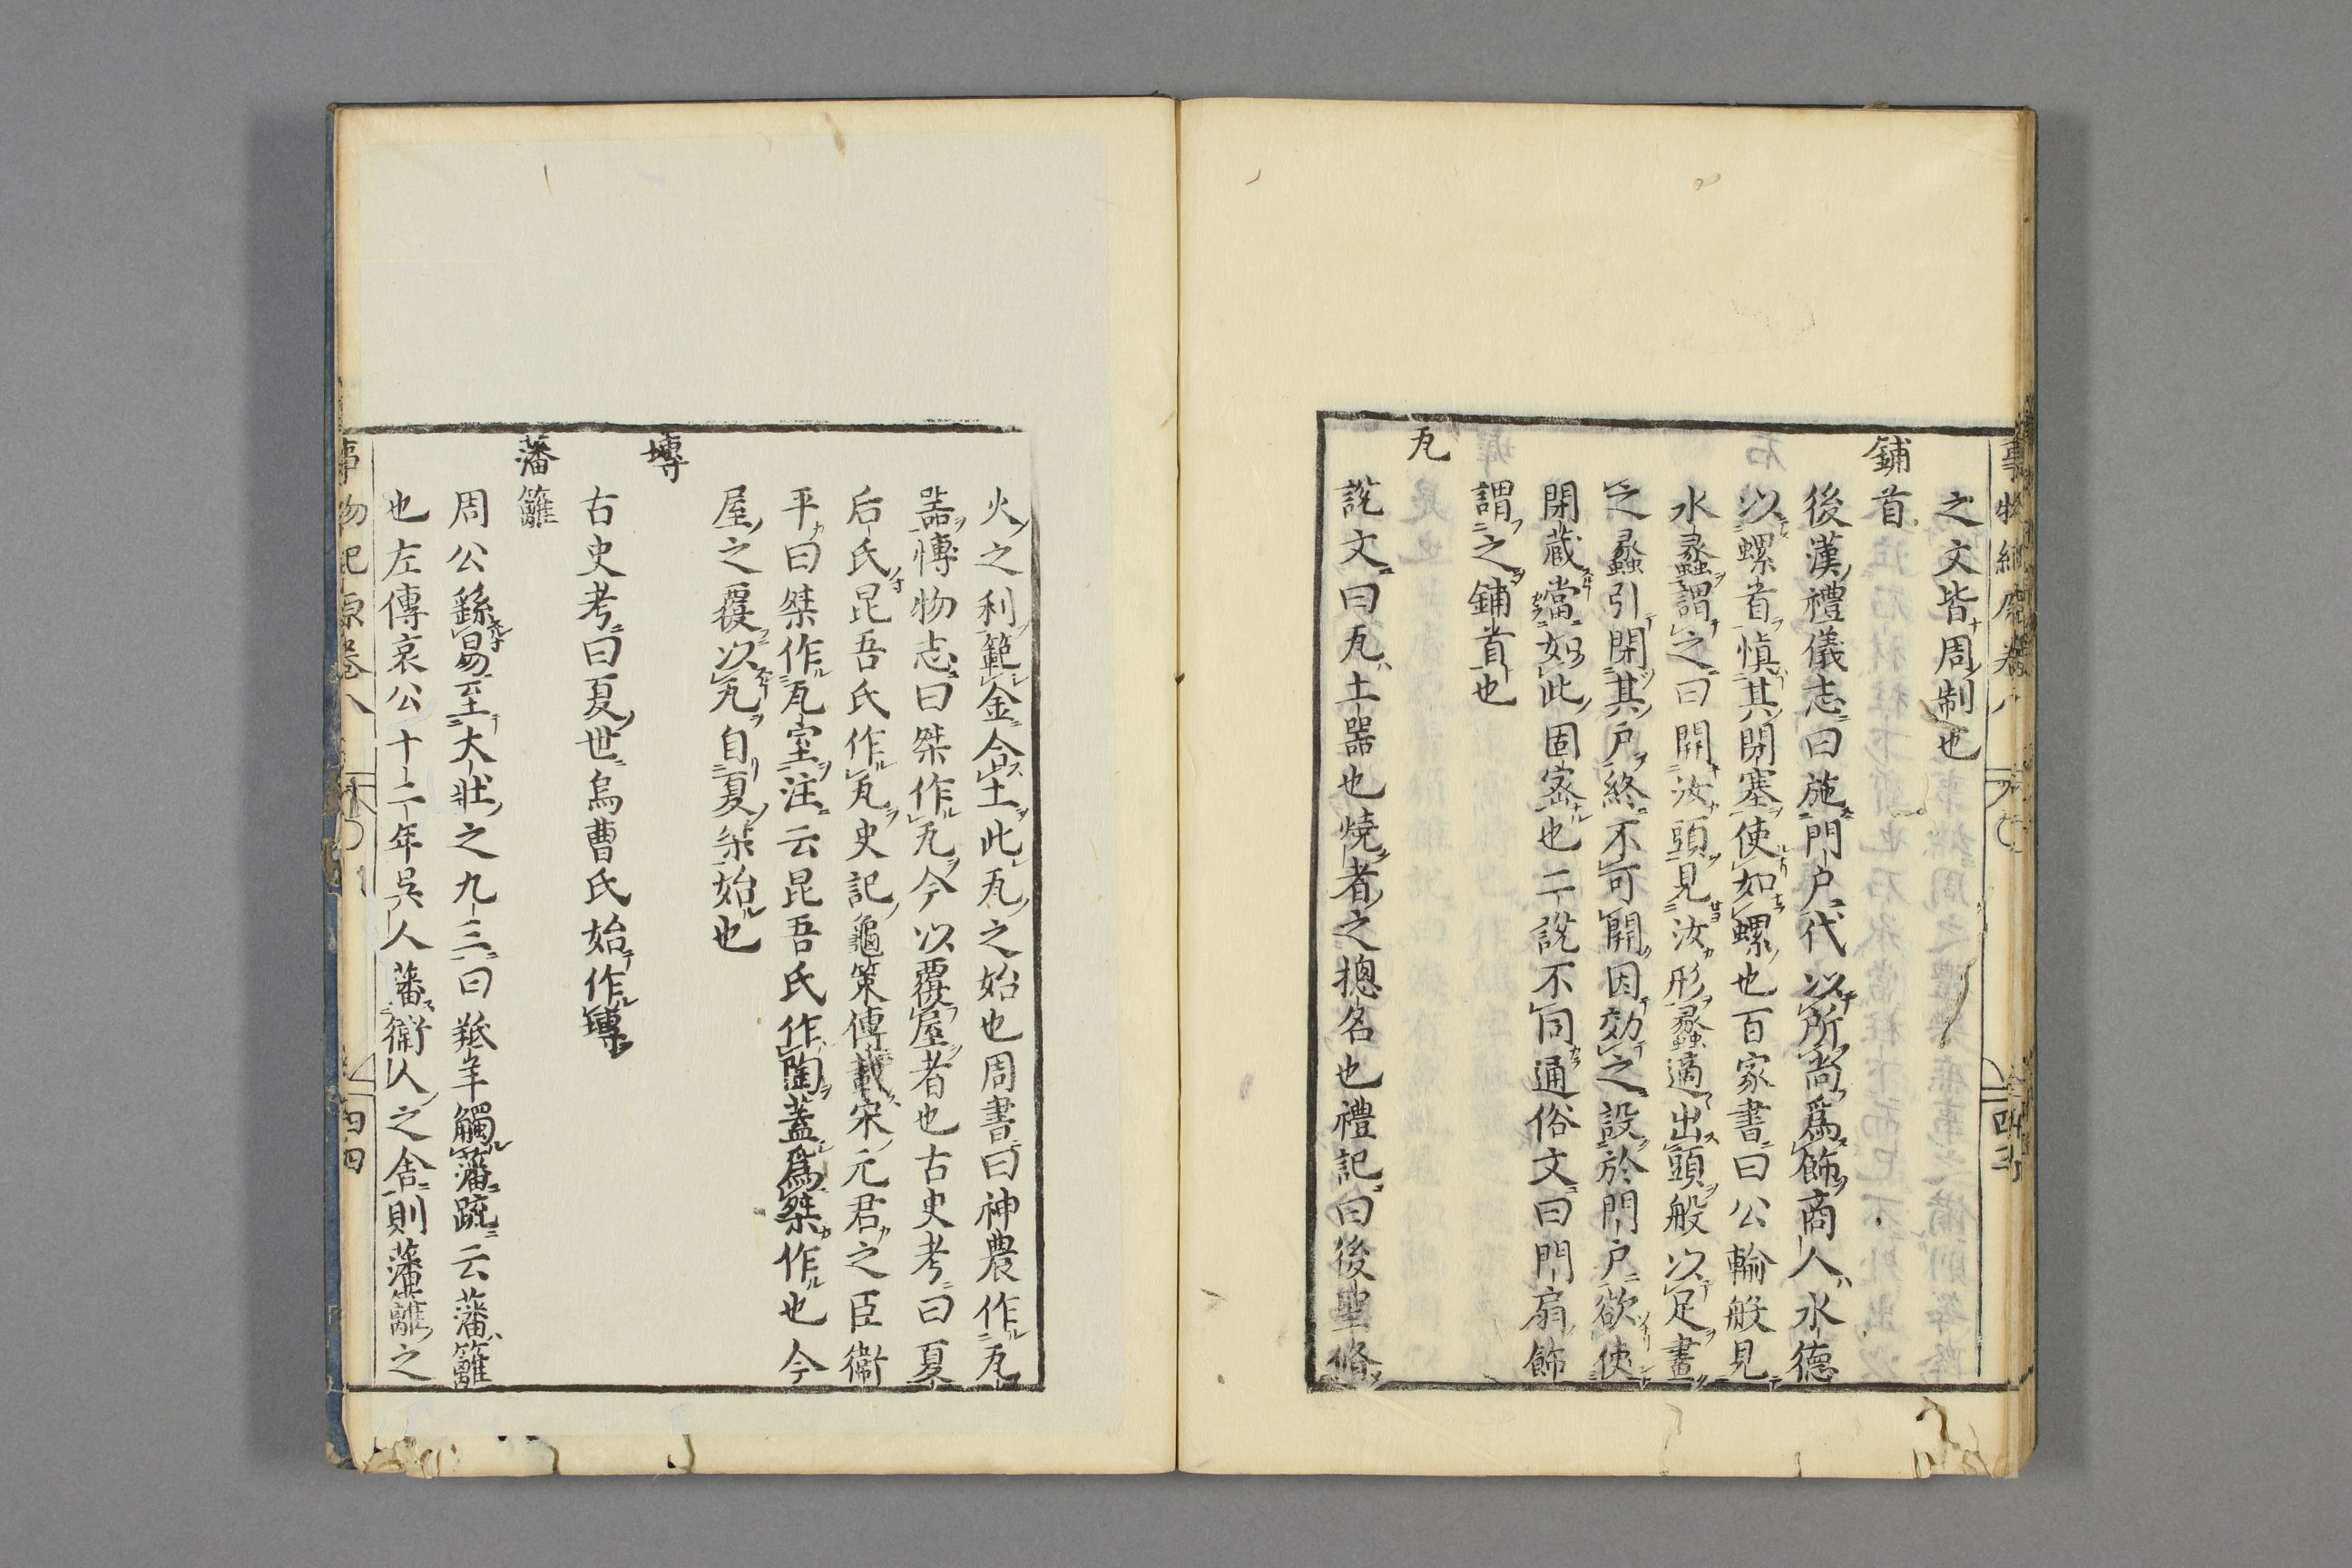 之文皆周制也
鋪首
後漢禮儀志曰施門户代以所尚爲飾商人水德
以螺首慎其閉塞使如螺也百家書曰公輸般見
水蠡謂之曰開汝頭見汝形蠡適出頭般以足畫
之蠡引閉其户終不可開因効之設於門户欲使
閉蔵當如此固宻也二說不同通俗文曰門扇飾
謂之鋪首也
瓦
說文曰瓦土器也燒者之摠名也禮記曰後聖脩
火之利範金合土此瓦之始也周書曰神農作瓦
噐博物志曰桀作瓦今以覆屋者也古史考曰夏
后氏昆吾氏作瓦史記龜策傳載宋元君之臣衛
平曰桀作瓦室注云昆吾氏作陶蓋爲桀作也今
屋之覆以瓦自夏桀始也
塼
古史考曰夏世烏曹氏始作塼
藩籬
周公繇易至大壯之九三曰羝羊觸藩䟽云藩籬
也左傳哀公十二年吳人藩衛侯之舎則藩籬之
事物紀原卷八
四四